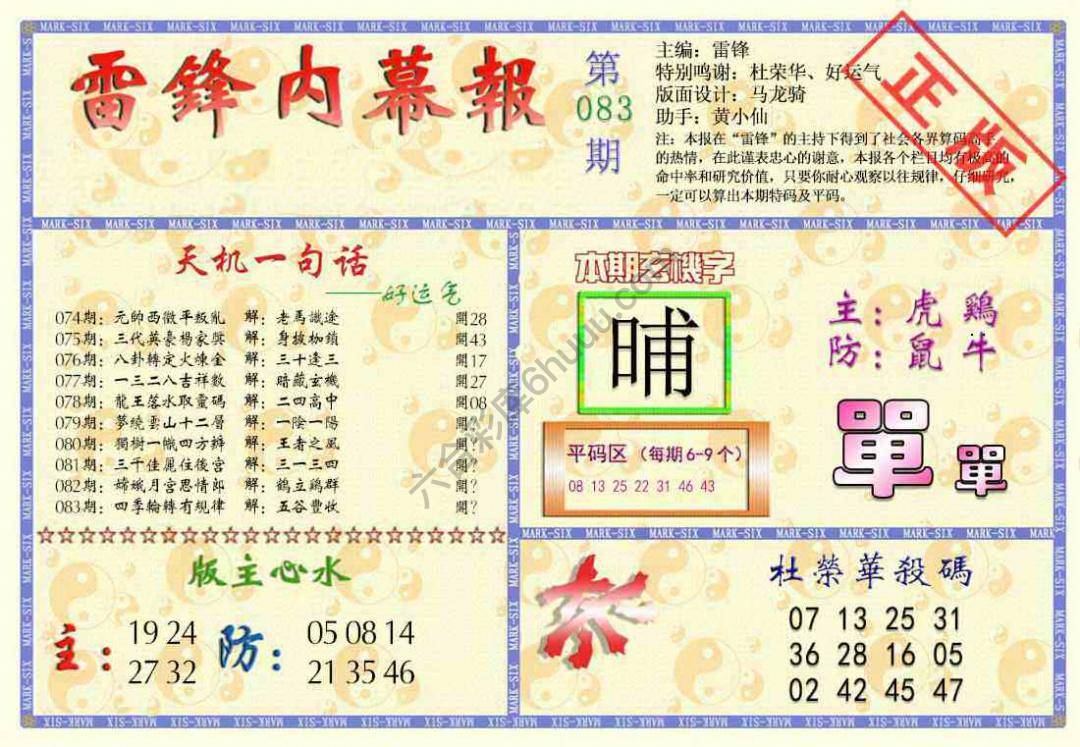 雷鋒内幕報
第
083
期
主编：雷锋
特别鸣谢：杜荣华、好运气
版面设计：马龙骑
助手：黄小仙
注：本报在“雷锋”的主持下得到了社会各界算码高手
的热情，在此谨表忠心的谢意，本报各个栏目均有极高的
命中率和研究价值，只要你耐心观察以往规律，仔细研究，
一定可以算出本期特码及平码。
正版
天机一句话
——好运气
074期：元帥西徵平叛亂 解：老馬識途 開28
075期：三代英豪楊家興 解：身披枷鎖 開43
076期：八卦轉定火煉金 解：三十逢三 開17
077期：一三二八吉祥數 解：暗藏玄機 開27
078期：龍王落水取靈碼 解：二四高中 開08
079期：夢繞雲山十二層 解：一陰一陽 開?
080期：獨樹一幟四方辦 解：王者之風 開?
081期：三千佳麗住後宮 解：三一三四 開?
082期：嫦娥月宮思情郎 解：鶴立鷄群 開?
083期：四季輪轉有規律 解：五谷豐收 開?
本期玄機字
晡
主：虎 鷄
防：鼠 牛
平码区（每期6-9个）
08 13 25 22 31 46 43
單 單
版主心水
主：
19 24
27 32
防：
05 08 14
21 35 46
杀
杜榮華殺碼
07 13 25 31
36 28 16 05
02 42 45 47
六合彩库6huuu.com
MARK-SIX